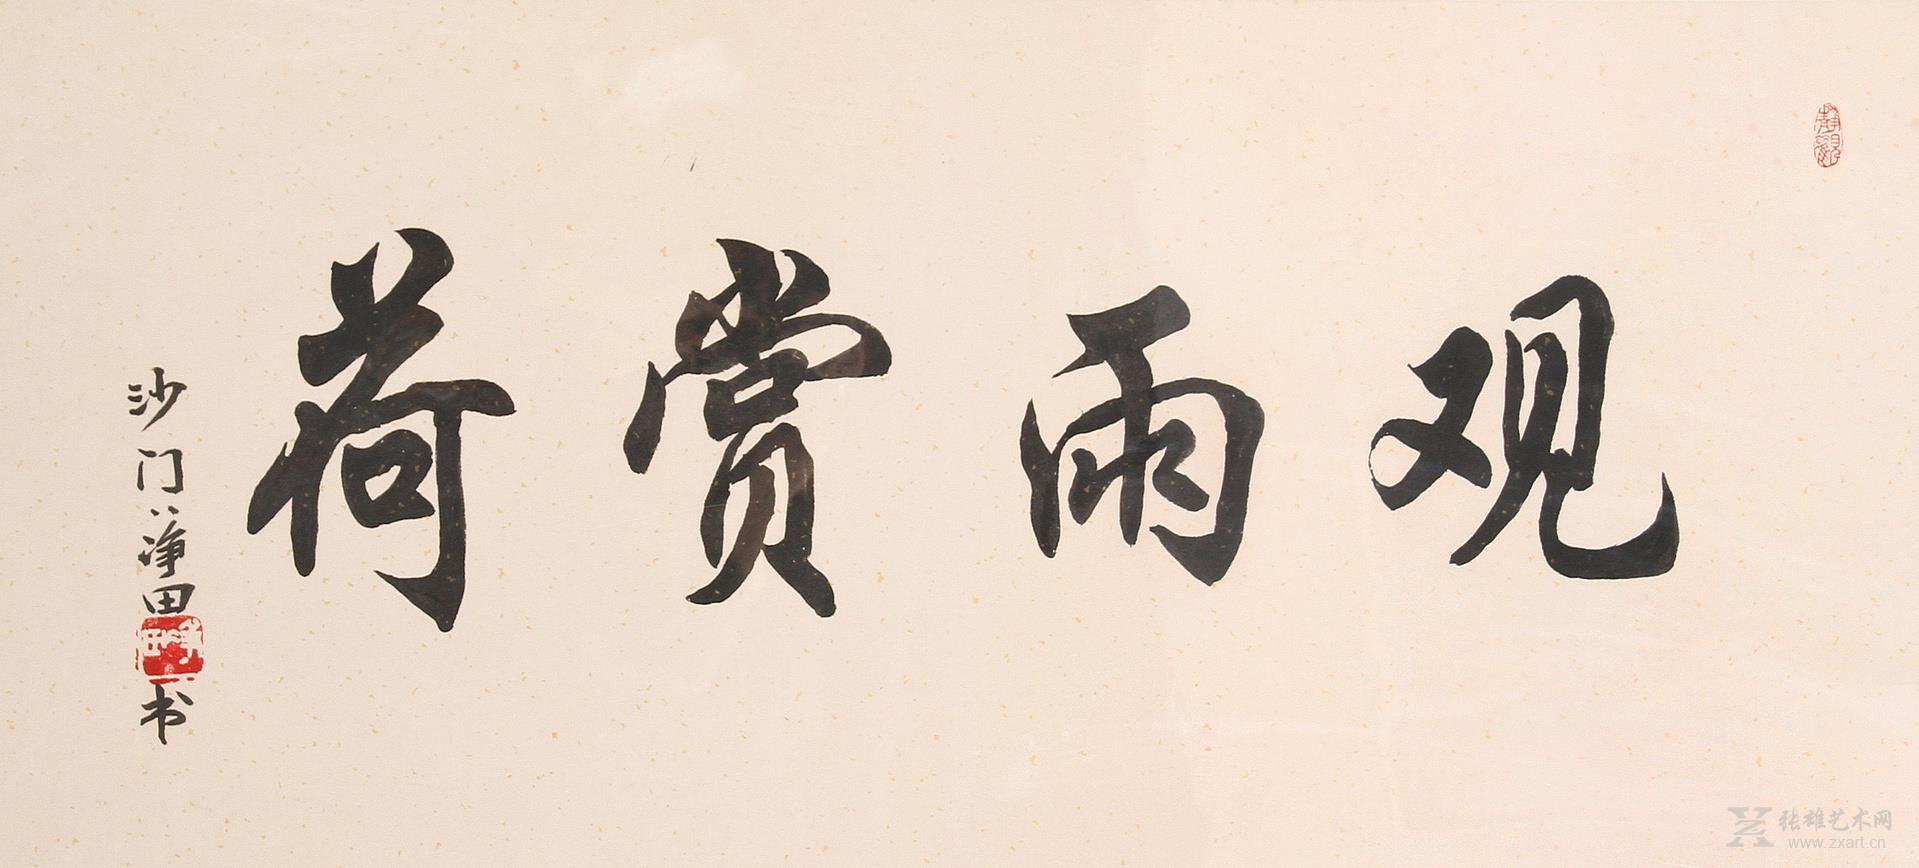 观雨赏荷
沙门净田书
靜觀
张雄艺术网
www.zxart.cn